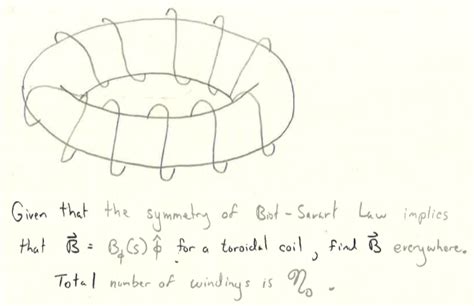 Given that the symmetry of Biot-Savart Law implies
that B⃗ = Bϕ(s) ϕ̂ for a toroidal coil, find B⃗ everywhere.
Total number of windings is η₀.